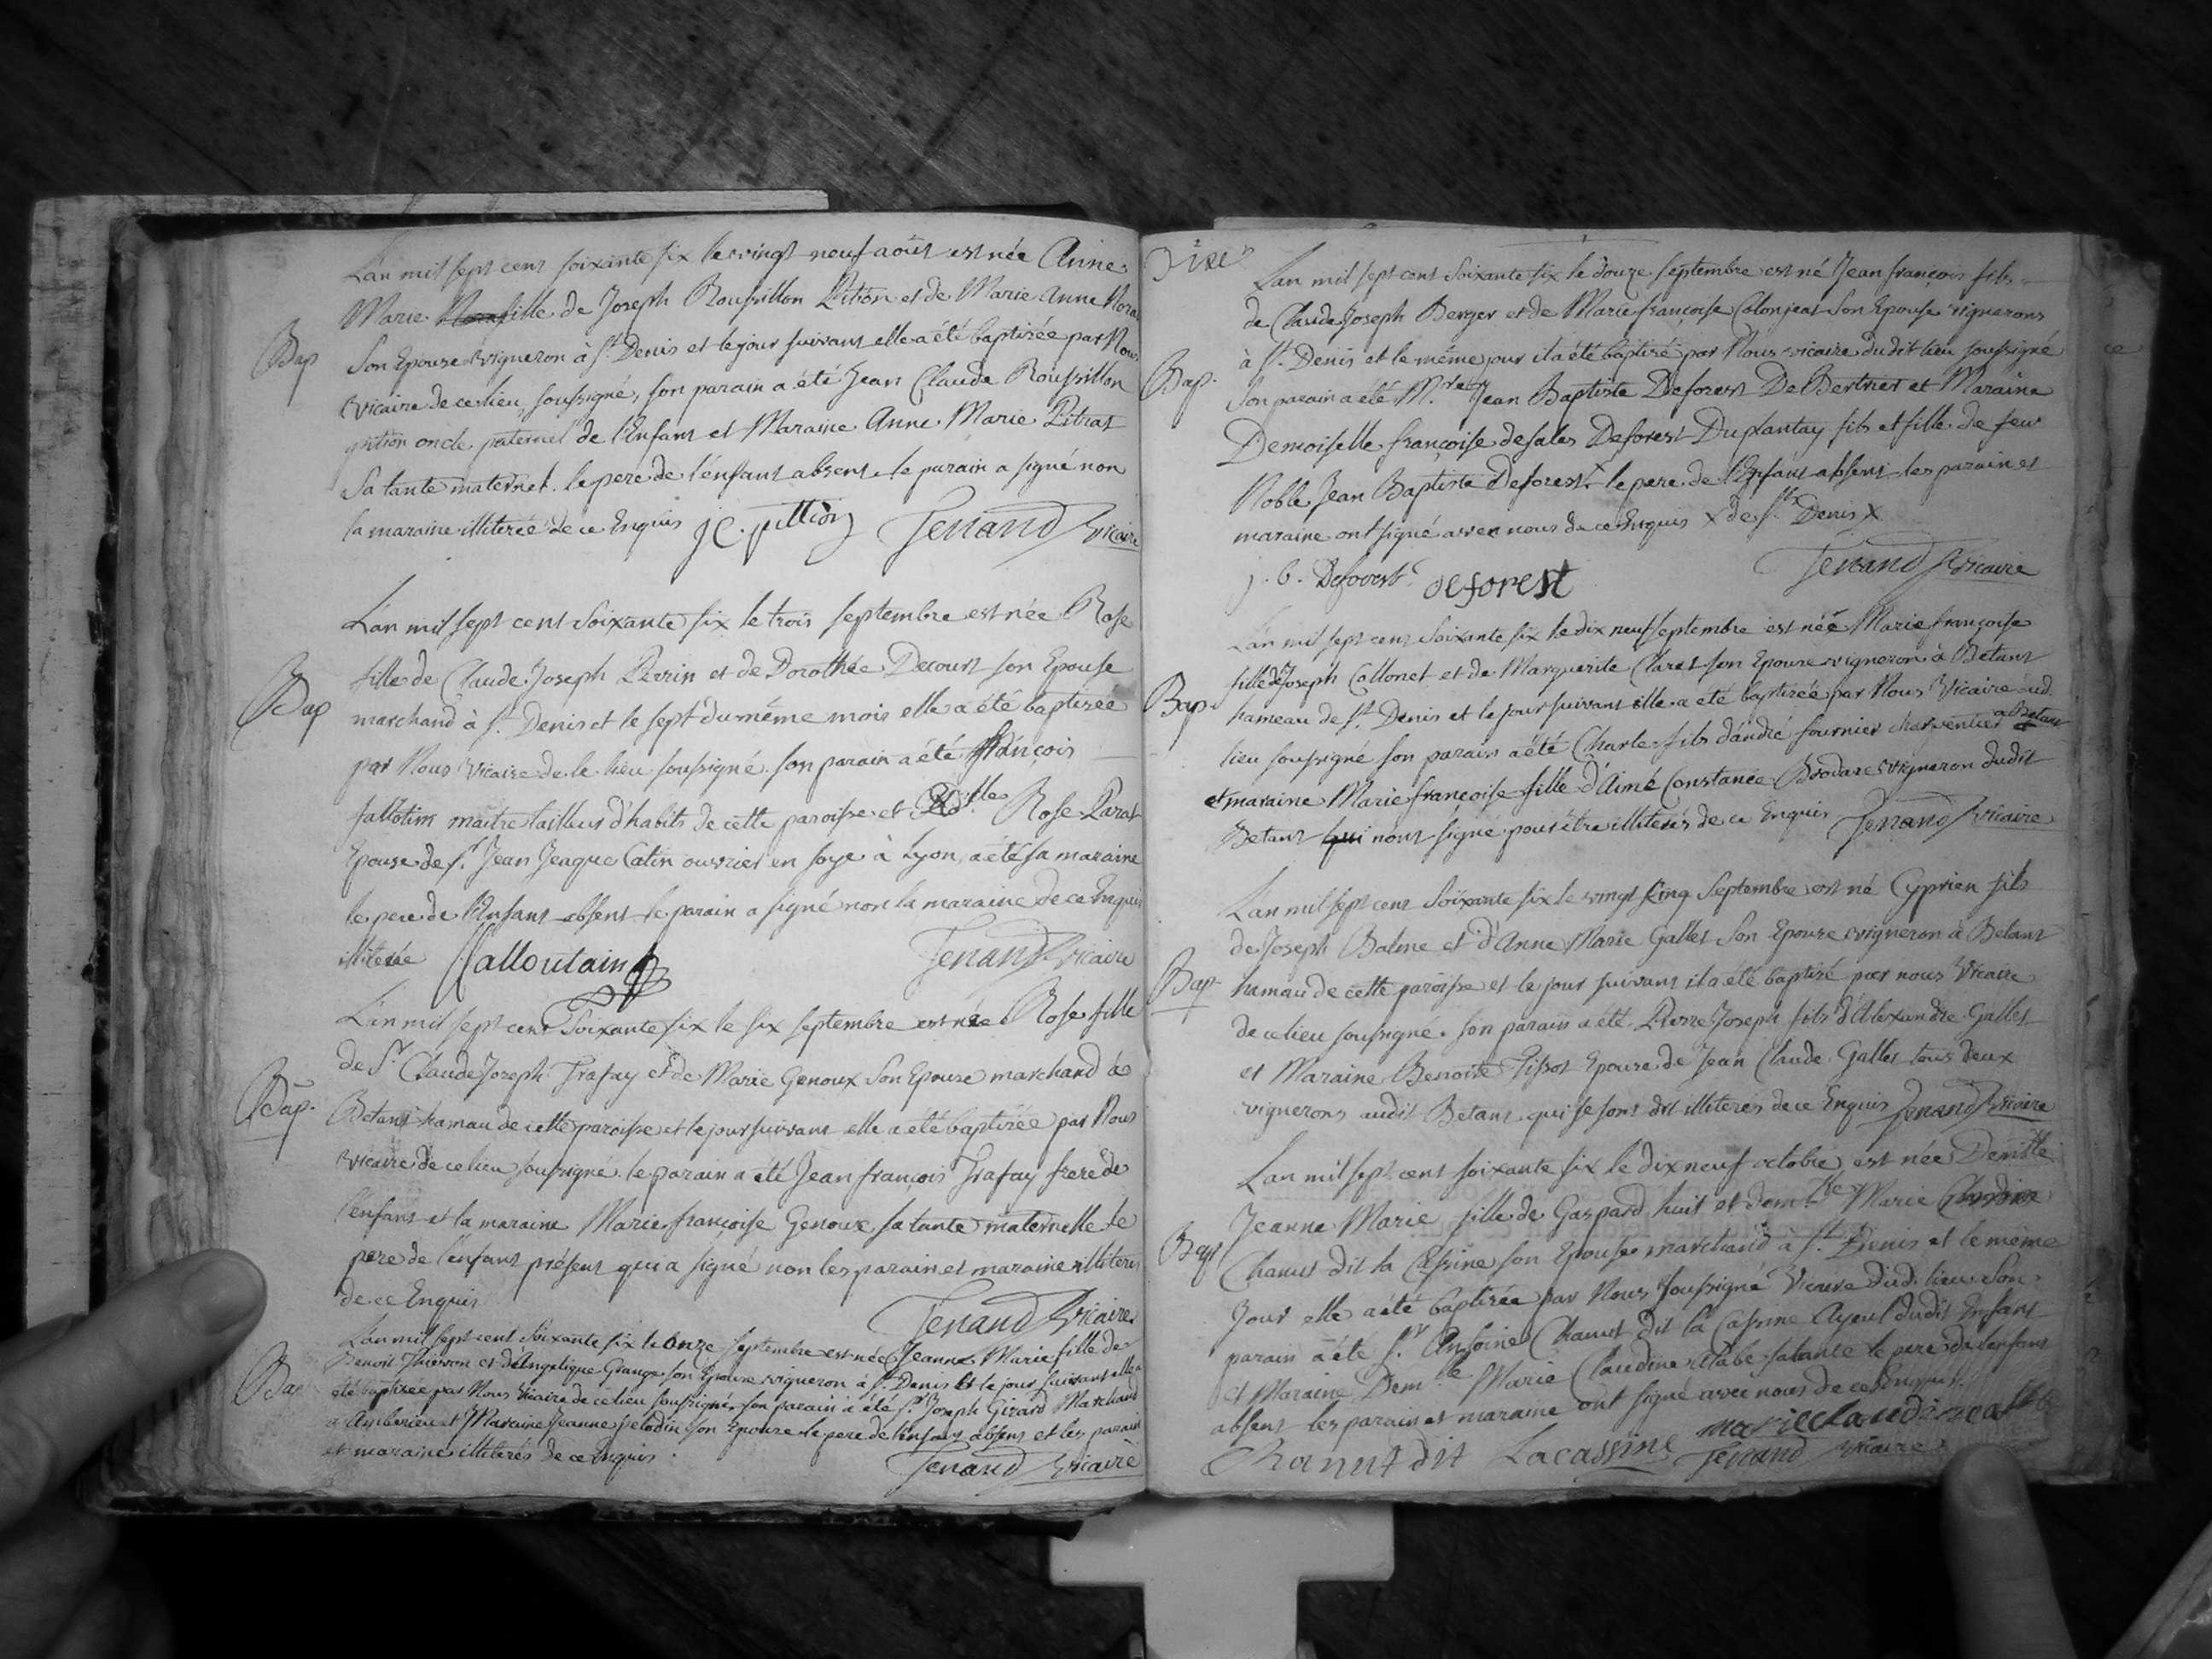 L'an mil sept cent soixante six le vingt neuf août est née Anne
Marie fille de Joseph Roussillon Pition et de Marie Anne
Bap
Son Epouse vigneron à St. Denis et le jour suivant elle a été baptisée par Nous
vicaire de ce lieu soussigné, son parain a été Jean Claude Roussillon
pition oncle paternel de l'Enfant et Maraine Anne Marie Pitrat
Sa tante maternel. le pere de l'enfant absent le parain a signé non
la maraine illiterée de ce Enquis J C. pittion Tenand Vicaire
L'an mil sept cent soixante six le trois septembre est née Rose
fille de Claude Joseph Perrin et de Dorothée Decourt son Epouse
Bap
marchand à St. Denis et le sept du même mois elle a été baptisée
par Nous Vicaire de le lieu soussigné. son parain a été françois
maitre tailleur d'habits de cette paroisse et Rose Parat
Epouse de Sr. Jean Jeaque Catin ouvrier en soye à Lyon, a été sa maraine
le pere de l'Enfant absent le parain a signé non la maraine de ce Enquis
illiterée Falloutain Tenand Vicaire
L'an mil sept cent Soixante six le six septembre est née Rose fille
de Sr. Claude Joseph Trafay et de Marie Genoux Son Epouse marchand à
Bap.
Betant hamau de cette paroisse et le jour suivant elle a été baptisée par Nous
vicaire de ce lieu soussigné. le parain a été Jean françois Trafay frere de
l'enfant et la maraine Marie françoise Genoux sa tante maternelle le
pere de l'enfant présent qui a signé non les parain et maraine illiterés
de ce Enquis Tenand Vicaire
L'an mil sept cent Soixante six le onze Septembre est née Jeanne Marie fille de
Benoit Thiesson et d'Angelique Grange son Epouse vigneron à St. Denis et le jour suivant elle a
Bap
été baptisée par Nous Vicaire de ce lieu soussigné, son parain a été Sr. Joseph Girard Marchand
a Amberieu et Maraine Jeanne son Epouse le pere de l'enfant absent et les parain
et maraine illiterés de ce Enquis. Tenand Vicaire
L'an mil sept cent Soixante six le douze septembre est né Jean françois fils
de Claude Joseph Berger et de Marie françoise Colonjeat Son Epouse vignerons
à St. Denis et le même jour il a été baptisé par Nous vicaire dudit lieu soussigné
Bap.
Son parain a été M.re Jean Baptiste Deforest De Bertrier et Maraine
Demoiselle françoise de sales Deforest Duplantay fils et fille de feu
Noble Jean Baptiste Deforest. le pere de l'Enfant absent les parain et
maraine ont signé avec nous de ce Enquis x de St. Denis x
j. b. Deforest deforest Tenand Vicaire
L'an mil sept cent Soixante six le dix neuf septembre est née Marie françoise
fille de Joseph Collonet et de Marguerite Claret son Epouse vigneron à Betant
Bap.
hameau de St. Denis et le jour suivant elle a été baptisée par Nous Vicaire aud.
lieu soussigné son parain a été Charle fils d'andré fournier charpentier a Betant
et maraine Marie françoise fille d'Aimé Constance vigneron dudit
Betant qui n'ont signé pour être illiterés de ce Enquis Tenand Vicaire
L'an mil sept cent Soixante six le vingt cinq Septembre est né Cyprien fils
de Joseph Balme et d'Anne Marie Gallet Son Epouse vigneron à Betant
Bap.
hamau de cette paroisse et le jour suivant il a été baptisé par nous Vicaire
de ce lieu soussigné. son parain a été Pierre Joseph fils d'Alexandre Gallet
et Maraine Benoite Tissot Epouse de Jean Claude Gallet tous deux
vignerons audit Betant qui se sont dit illiterés de ce Enquis Tenand Vicaire
L'an mil sept cent soixante six le dix neuf octobre est née
Jeanne Marie fille de Gaspard huit et dem.lle Marie
Bap
Chanut dit la Cassine son Epouse marchand à St. Denis et le même
Jour elle a été baptisée par Nous soussigné Vicaire dud. lieu Son
parain a été Sr. Antoine Chanut dit la Cassine Ayeul dudit Enfant
et Maraine Dem.lle Marie Claudine Alabe sa tante le pere de l'enfant
absent les parain et maraine ont signé avec nous de ce Enquis.
Chanut dit Lacassine Tenand Vicaire